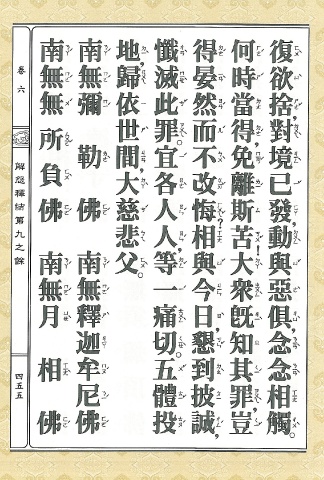 復欲捨，對境已發，動與惡俱，念念相觸。
何時當得，免離斯苦！大衆既知其罪，豈
得晏然而不改悔？相與今日，懇到披誠，
懺滅此罪。宜各人人，等一痛切，五體投
地，歸依世間，大慈悲父。
南無彌勒佛　南無釋迦牟尼佛
南無無所負佛　南無月相佛
卷六
解怨釋結第九之餘
四五五